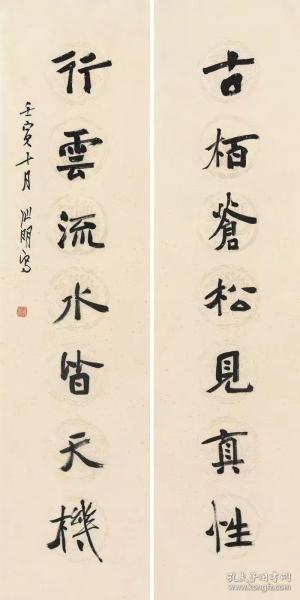 古栢蒼松見真性
行雲流水皆天機
壬寅十月
孔夫子旧书网